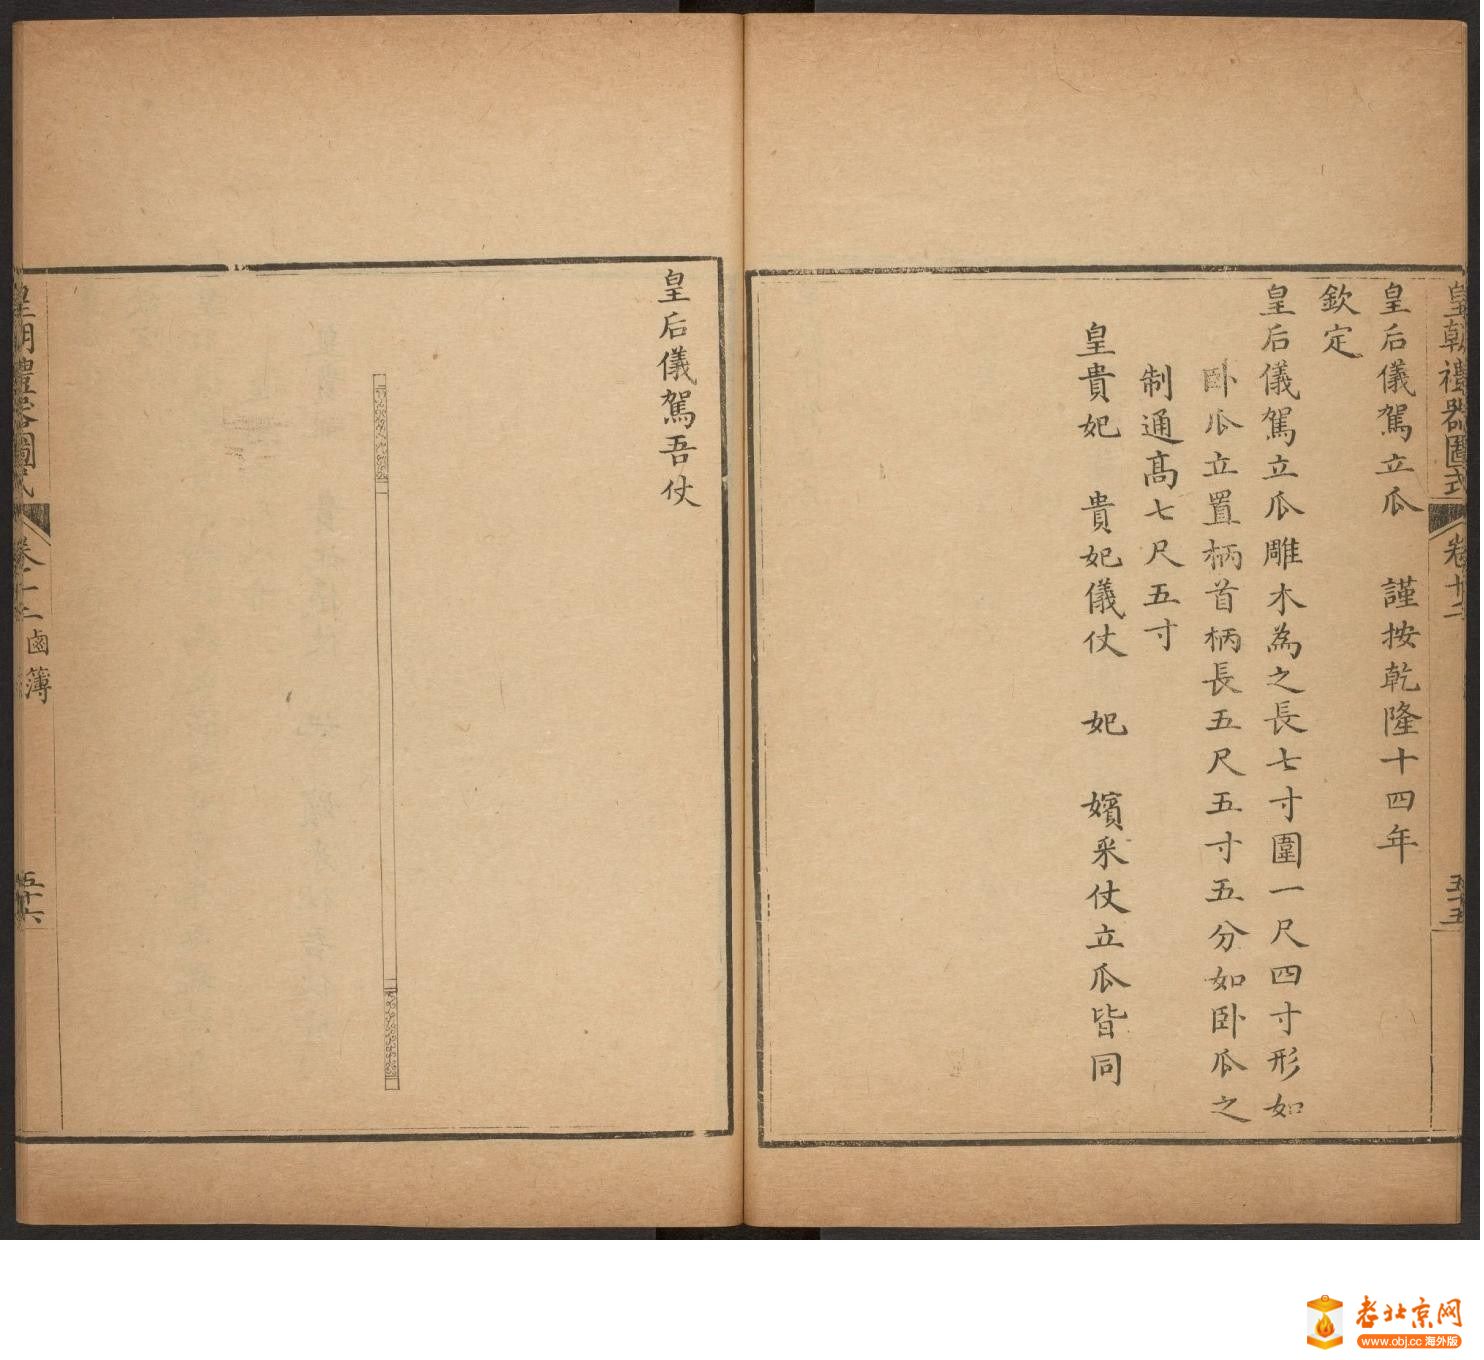 皇朝禮器圖式 卷十二 五十五
皇后儀駕立瓜 謹按乾隆十四年
欽定
皇后儀駕立瓜雕木為之長七寸圍一尺四寸形如
卧瓜立置柄首柄長五尺五寸五分如卧瓜之
制通髙七尺五寸
皇貴妃 貴妃儀仗 妃 嬪采仗立瓜皆同
皇后儀駕吾仗
皇朝禮器圖式 卷十二 鹵簿 五十六
老北京网
www.obj.cc 海外版